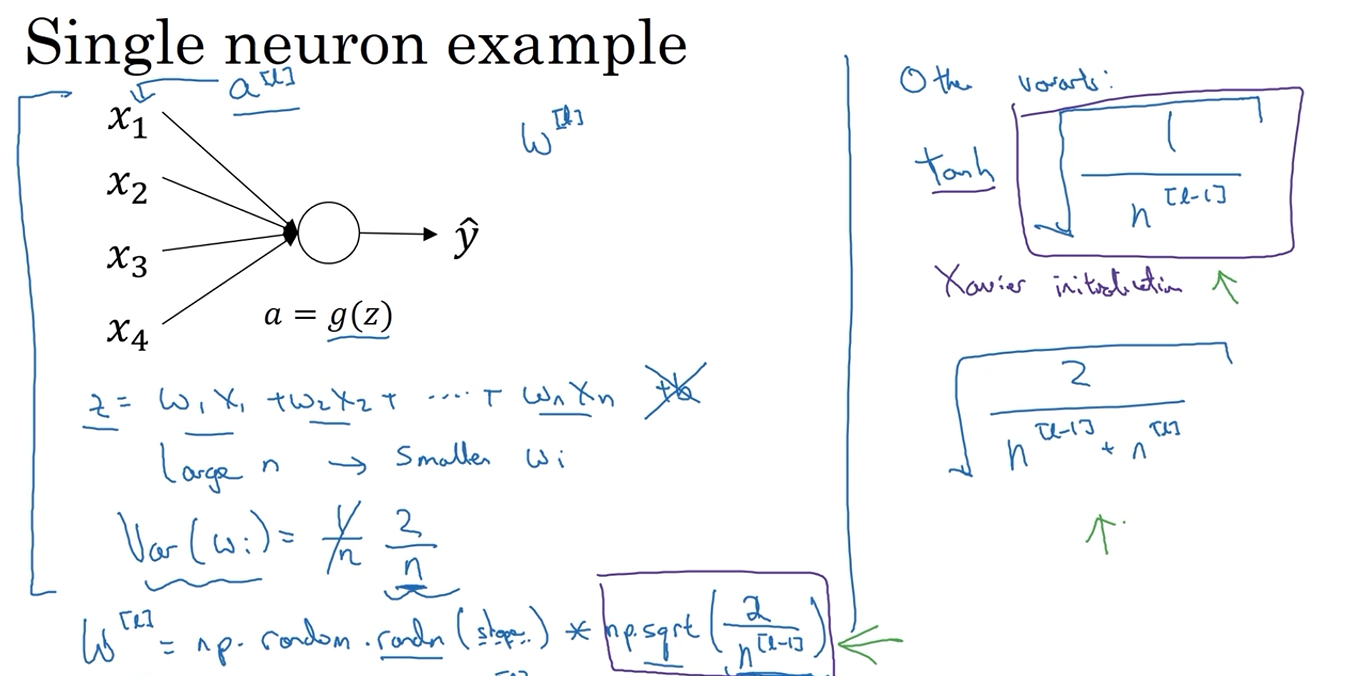 Single neuron example
a^[l]
x₁
x₂
x₃
x₄
ŷ
a = g(z)
w^[l]
z = w₁x₁ + w₂x₂ + ····+ wₙxₙ +b
Large n → Smaller wᵢ
Var(wᵢ) = 1/n 2/n
W^[l] = np.random.randn(shape) * np.sqrt(2/n^[l-1])
Other variants:
tanh √(1/n^[l-1])
Xavier initialization ↑
√(2/(n^[l-1] + n^[l]))
↑